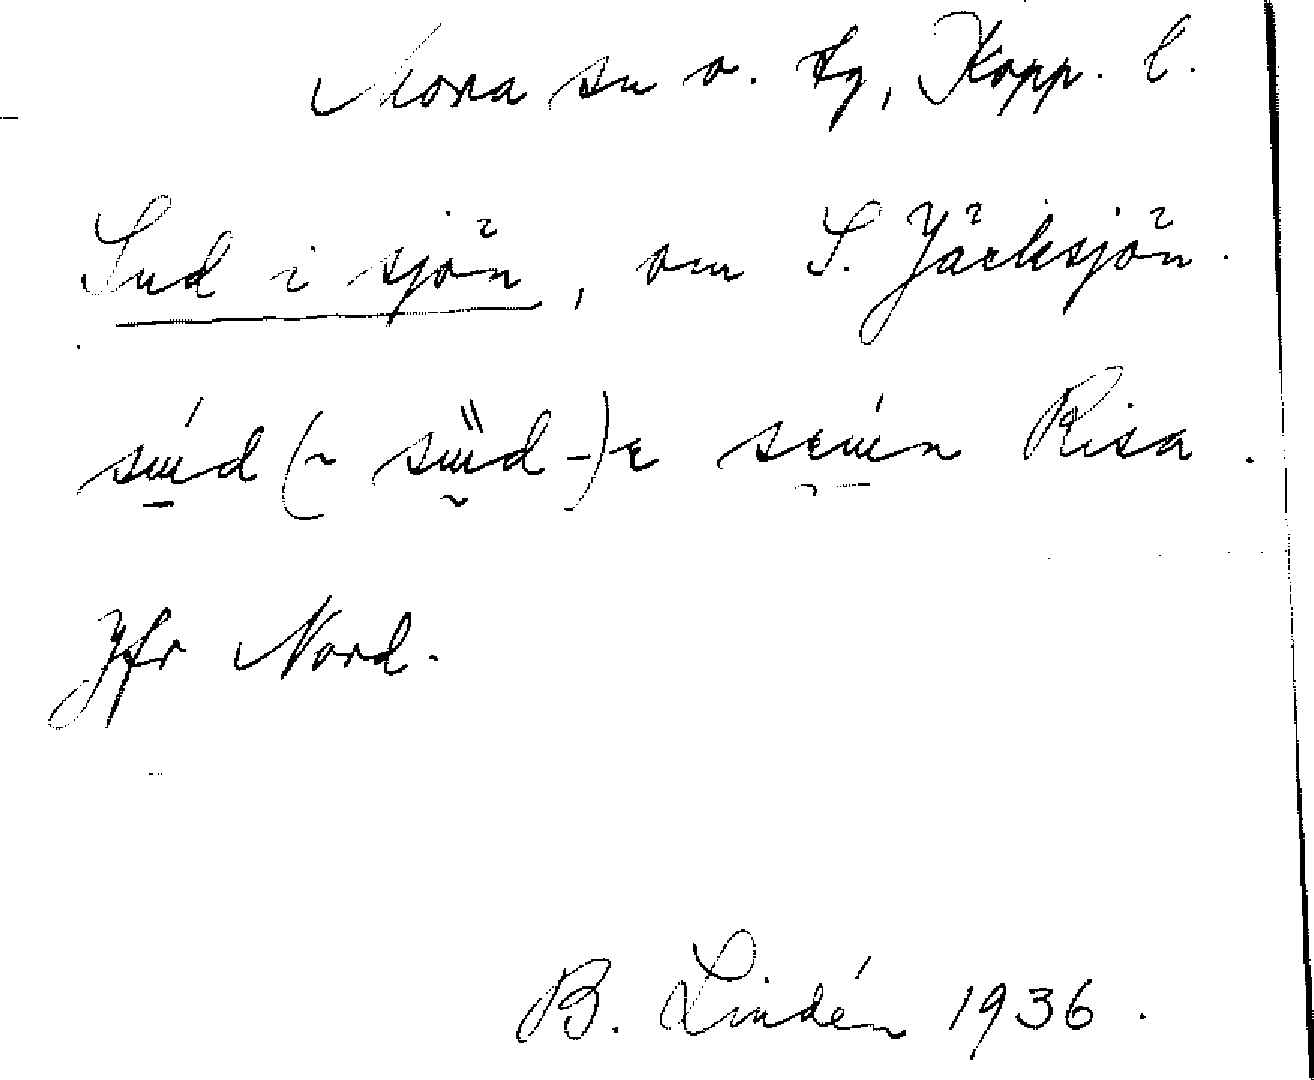 Mora sn o. tg, Kopp. l.
Sud i sjön, om S. Jäcksjön.
Risa.
Jfr Nord.
B. Lindén 1936.